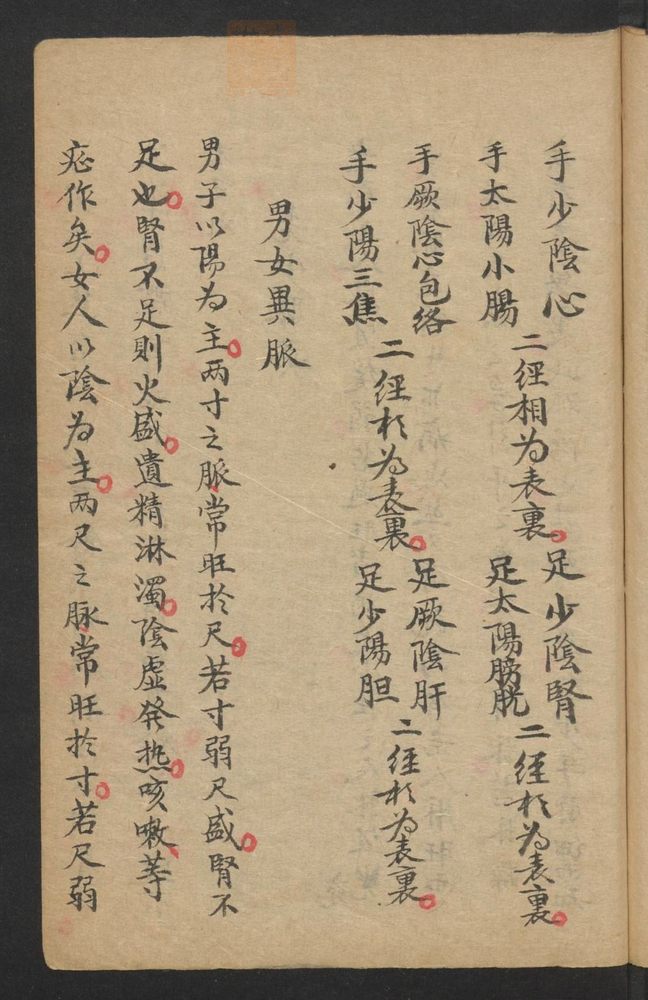 手少陰心
手太陽小腸
二經相为表裏
足少陰腎
足太陽膀胱
二經相为表裏
手厥陰心包络
手少陽三焦
二經相为表裏
足厥陰肝
足少陽胆
二經相为表裏
男女異脈
男子以陽为主两寸之脈常旺於尺若寸弱尺盛腎不
足也腎不足則火盛遺精淋濁陰虛発热咳嗽等
症作矣女人以陰为主两尺之脉常旺於寸若尺弱